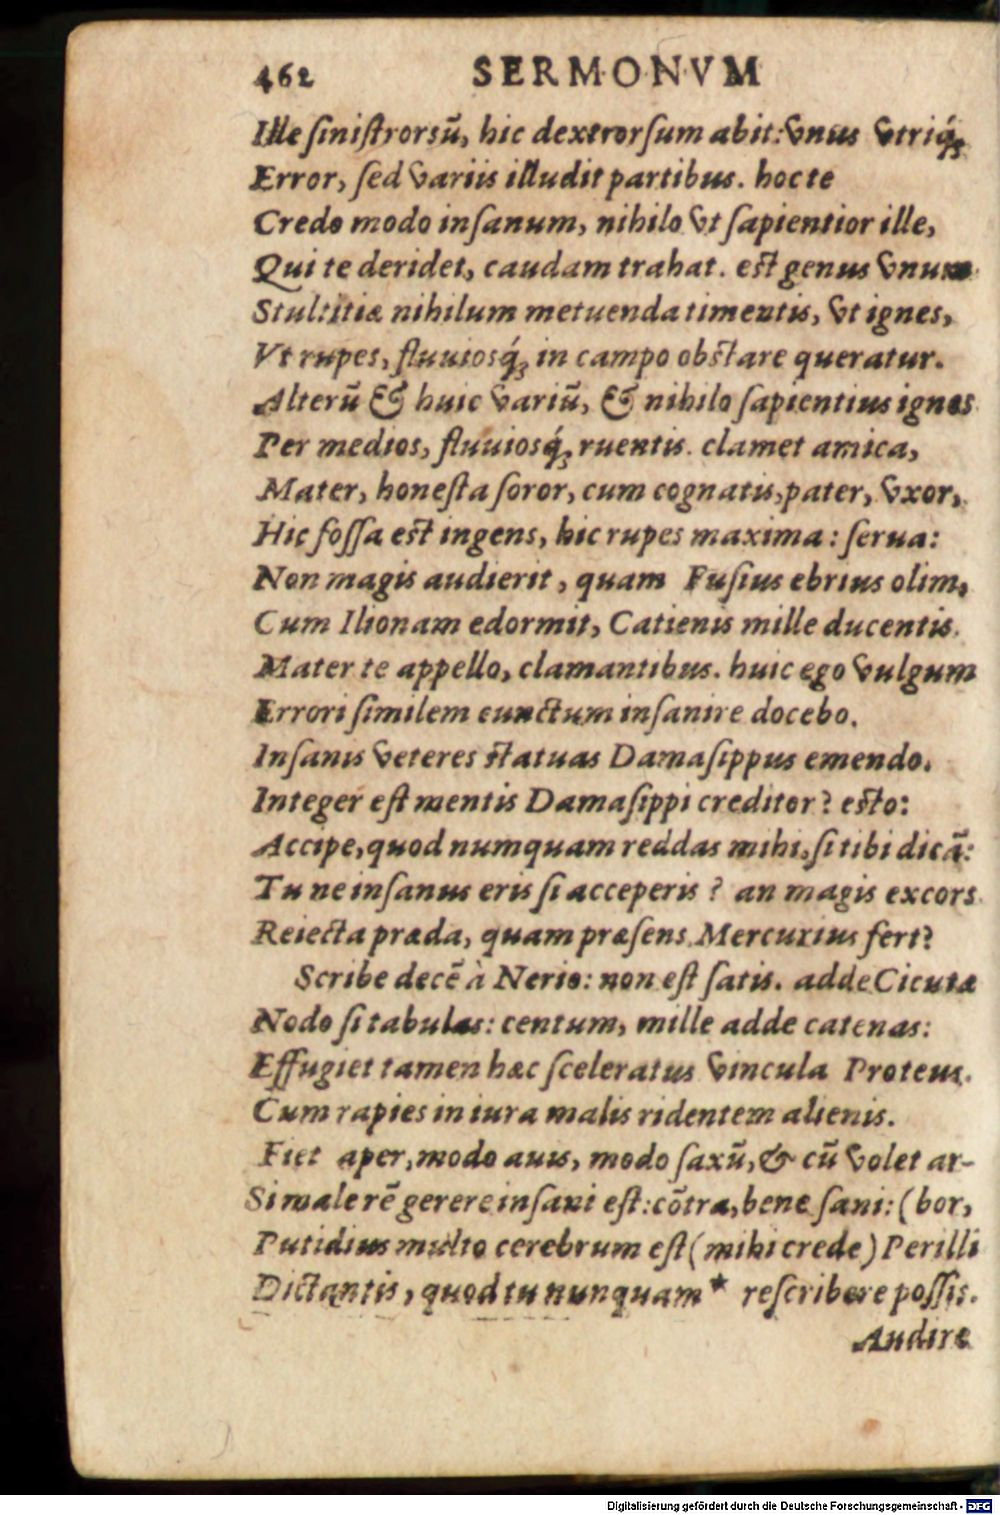 462 SERMONVM
Ille siniſtrorsū, hic dextrorſum abit: vnus vtriq́ꝫ
Error, ſed variis illudit partibus. hoc te
Credo modo inſanum, nihilo vt ſapientior ille,
Qui te deridet, caudam trahat. eſt genus vnum
Stultitiæ nihilum metuenda timentis, vt ignes,
Vt rupes, fluuiosq́ꝫ in campo obſtare queratur.
Alterū & huic variū, & nihilo ſapientius ignes
Per medios, fluuiosq́ꝫ ruentis. clamet amica,
Mater, honeſta ſoror, cum cognatis, pater, vxor,
Hic foſſa eſt ingens, hic rupes maxima: ſerua:
Non magis audierit, quam Fuſius ebrius olim,
Cum Ilionam edormit, Catienis mille ducentis.
Mater te appello, clamantibus. huic ego vulgum
Errori ſimilem cunctum inſanire docebo.
Inſanis veteres ſtatuas Damaſippus emendo.
Integer eſt mentis Damaſippi creditor? eſto:
Accipe, quod numquam reddas mihi, ſi tibi dicā:
Tu ne inſanus eris ſi acceperis? an magis excors
Reiecta præda, quam præſens Mercurius fert?
Scribe decē à Nerio: non eſt ſatis. adde Cicutæ
Nodo ſi tabulas: centum, mille adde catenas:
Effugiet tamen hæc ſceleratus vincula Proteus.
Cum rapies in iura malis ridentem alienis.
Fiet aper, modo auis, modo ſaxū, & cū volet ar-
Si male rē gerere inſani eſt: cōtra, bene ſani: (bor,
Putidius multo cerebrum eſt (mihi crede) Perilli
Dictantis, quod tu nunquam * reſcribere poſſis.
Audire
Digitalisierung gefördert durch die Deutsche Forschungsgemeinschaft - DFG